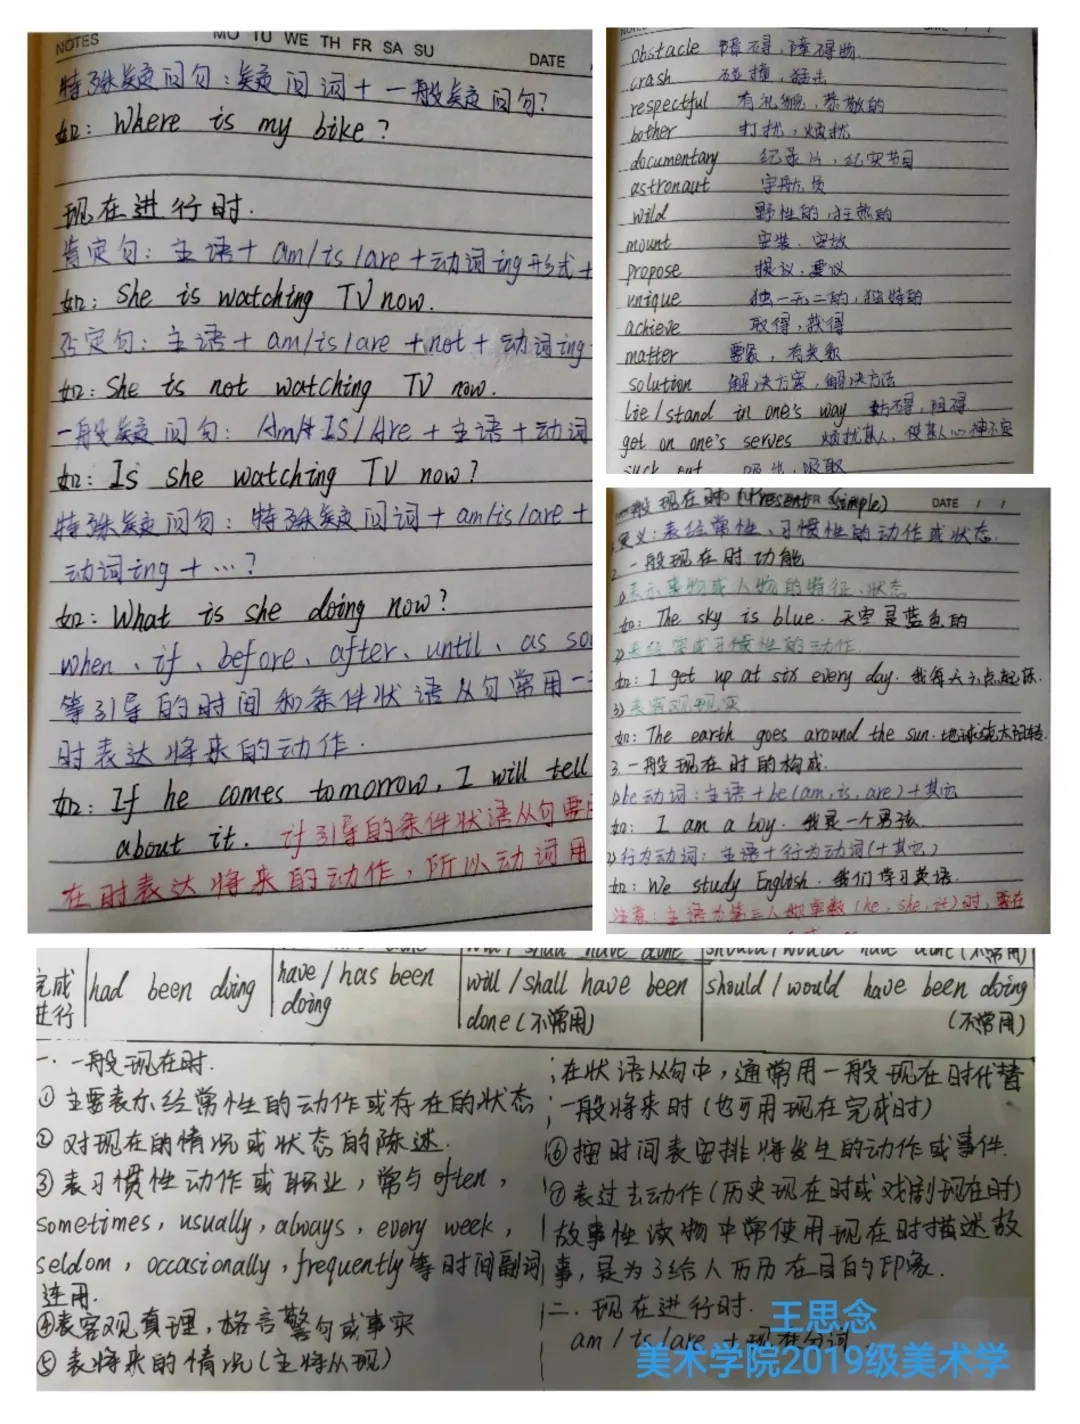 NOTES MO TU WE TH FR SA SU DATE
特殊疑问句：疑问词+一般疑问句？
如：Where is my bike？
现在进行时.
肯定句：主语+am/is/are+动词ing形式+
如：She is watching TV now.
否定句：主语+am/is/are+not+动词ing
如：She is not watching TV now.
一般疑问句：Am/IS/Are+主语+动词
如：Is she watching TV now？
特殊疑问句：特殊疑问词+am/is/are+
动词ing+…？
如：What is she doing now？
when、if、before、after、until、as so
等引导的时间和条件状语从句常用一
时表达将来的动作.
如：If he comes tomorrow，I will tell
about it. if引导的条件状语从句要
在时表达将来的动作，所以动词用
obstacle 障碍，障碍物
crash 碰撞，猛击
respectful 有礼貌，恭敬的
bother 打扰，烦扰
documentary 纪录片，纪实节目
astronaut 宇航员
wild 野性的，狂热的
mount 安装，安放
propose 提议，建议
unique 独一无二的，独特的
achieve 取得，获得
matter 要紧，有关系
solution 解决方案，解决方法
lie/stand in one's way 妨碍，阻碍
get on one's serves 烦扰某人，使某人心神不安
suck out 吸出，吸取
一般现在时(Present simple) DATE / /
定义：表经常性、习惯性的动作或状态.
2.一般现在时功能
1)表示事物或人物的特征、状态
如：The sky is blue. 天空是蓝色的
2)表经常或习惯性的动作.
如：I get up at six every day. 我每天六点起床.
3)表客观现实
如：The earth goes around the sun. 地球绕太阳转.
3.一般现在时的构成.
1)be动词：主语+be(am,is,are)+其它
如：I am a boy. 我是一个男孩.
2)行为动词：主语+行为动词(+其它)
如：We study English. 我们学习英语.
注意：主语为第三人称单数(he,she,it)时，要在
should/would have done(不常用)
完成进行 had been doing have/has been doing will/shall have been done(不常用) should/would have been doing (不常用)
一.一般现在时.
①主要表示经常性的动作或存在的状态
②对现在的情况或状态的陈述.
③表习惯性动作或职业，常与often，
sometimes，usually，always，every week，
seldom，occasionally，frequently等时间副词
连用.
④表客观真理，格言警句或事实
⑤表将来的情况(主将从现)
；在状语从句中，通常用一般现在时代替
一般将来时(也可用现在完成时)
⑥按时间表安排将发生的动作或事件.
⑦表过去动作(历史现在时或戏剧现在时)
故事性读物中常使用现在时描述故
事，是为了给人历历在目的印象.
二.现在进行时.
am/is/are+现在分词
王思念
美术学院2019级美术学